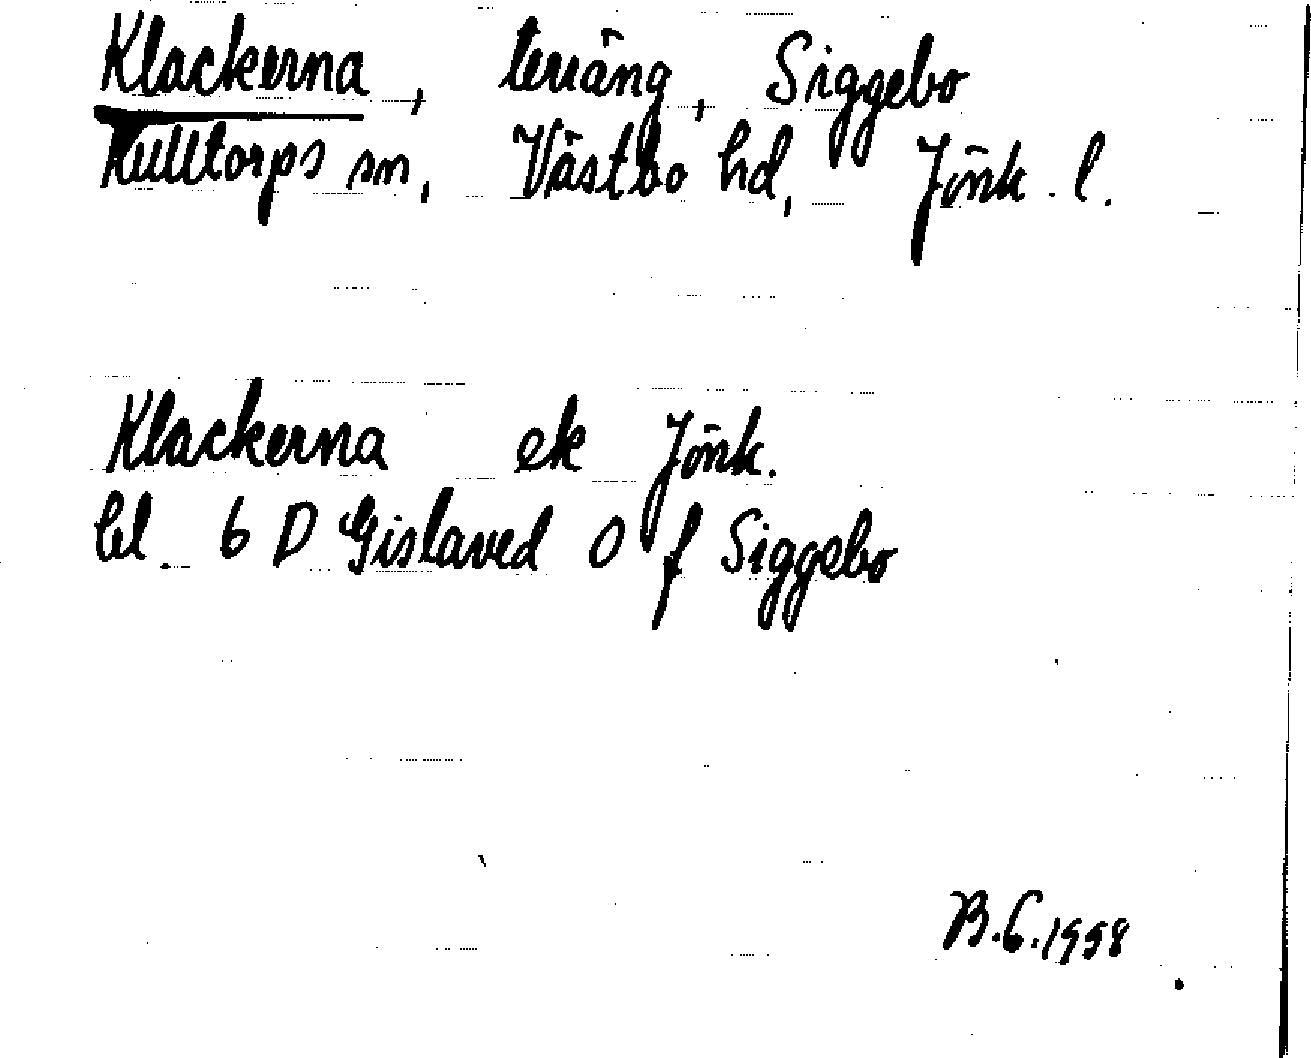 Klackerna, terräng, Siggebo
Kulltorps sn, Västbo hd, Jönk. l.
Klackerna ek Jönk.
bl. 6 D Gislaved O f Siggebo
B.G.1958